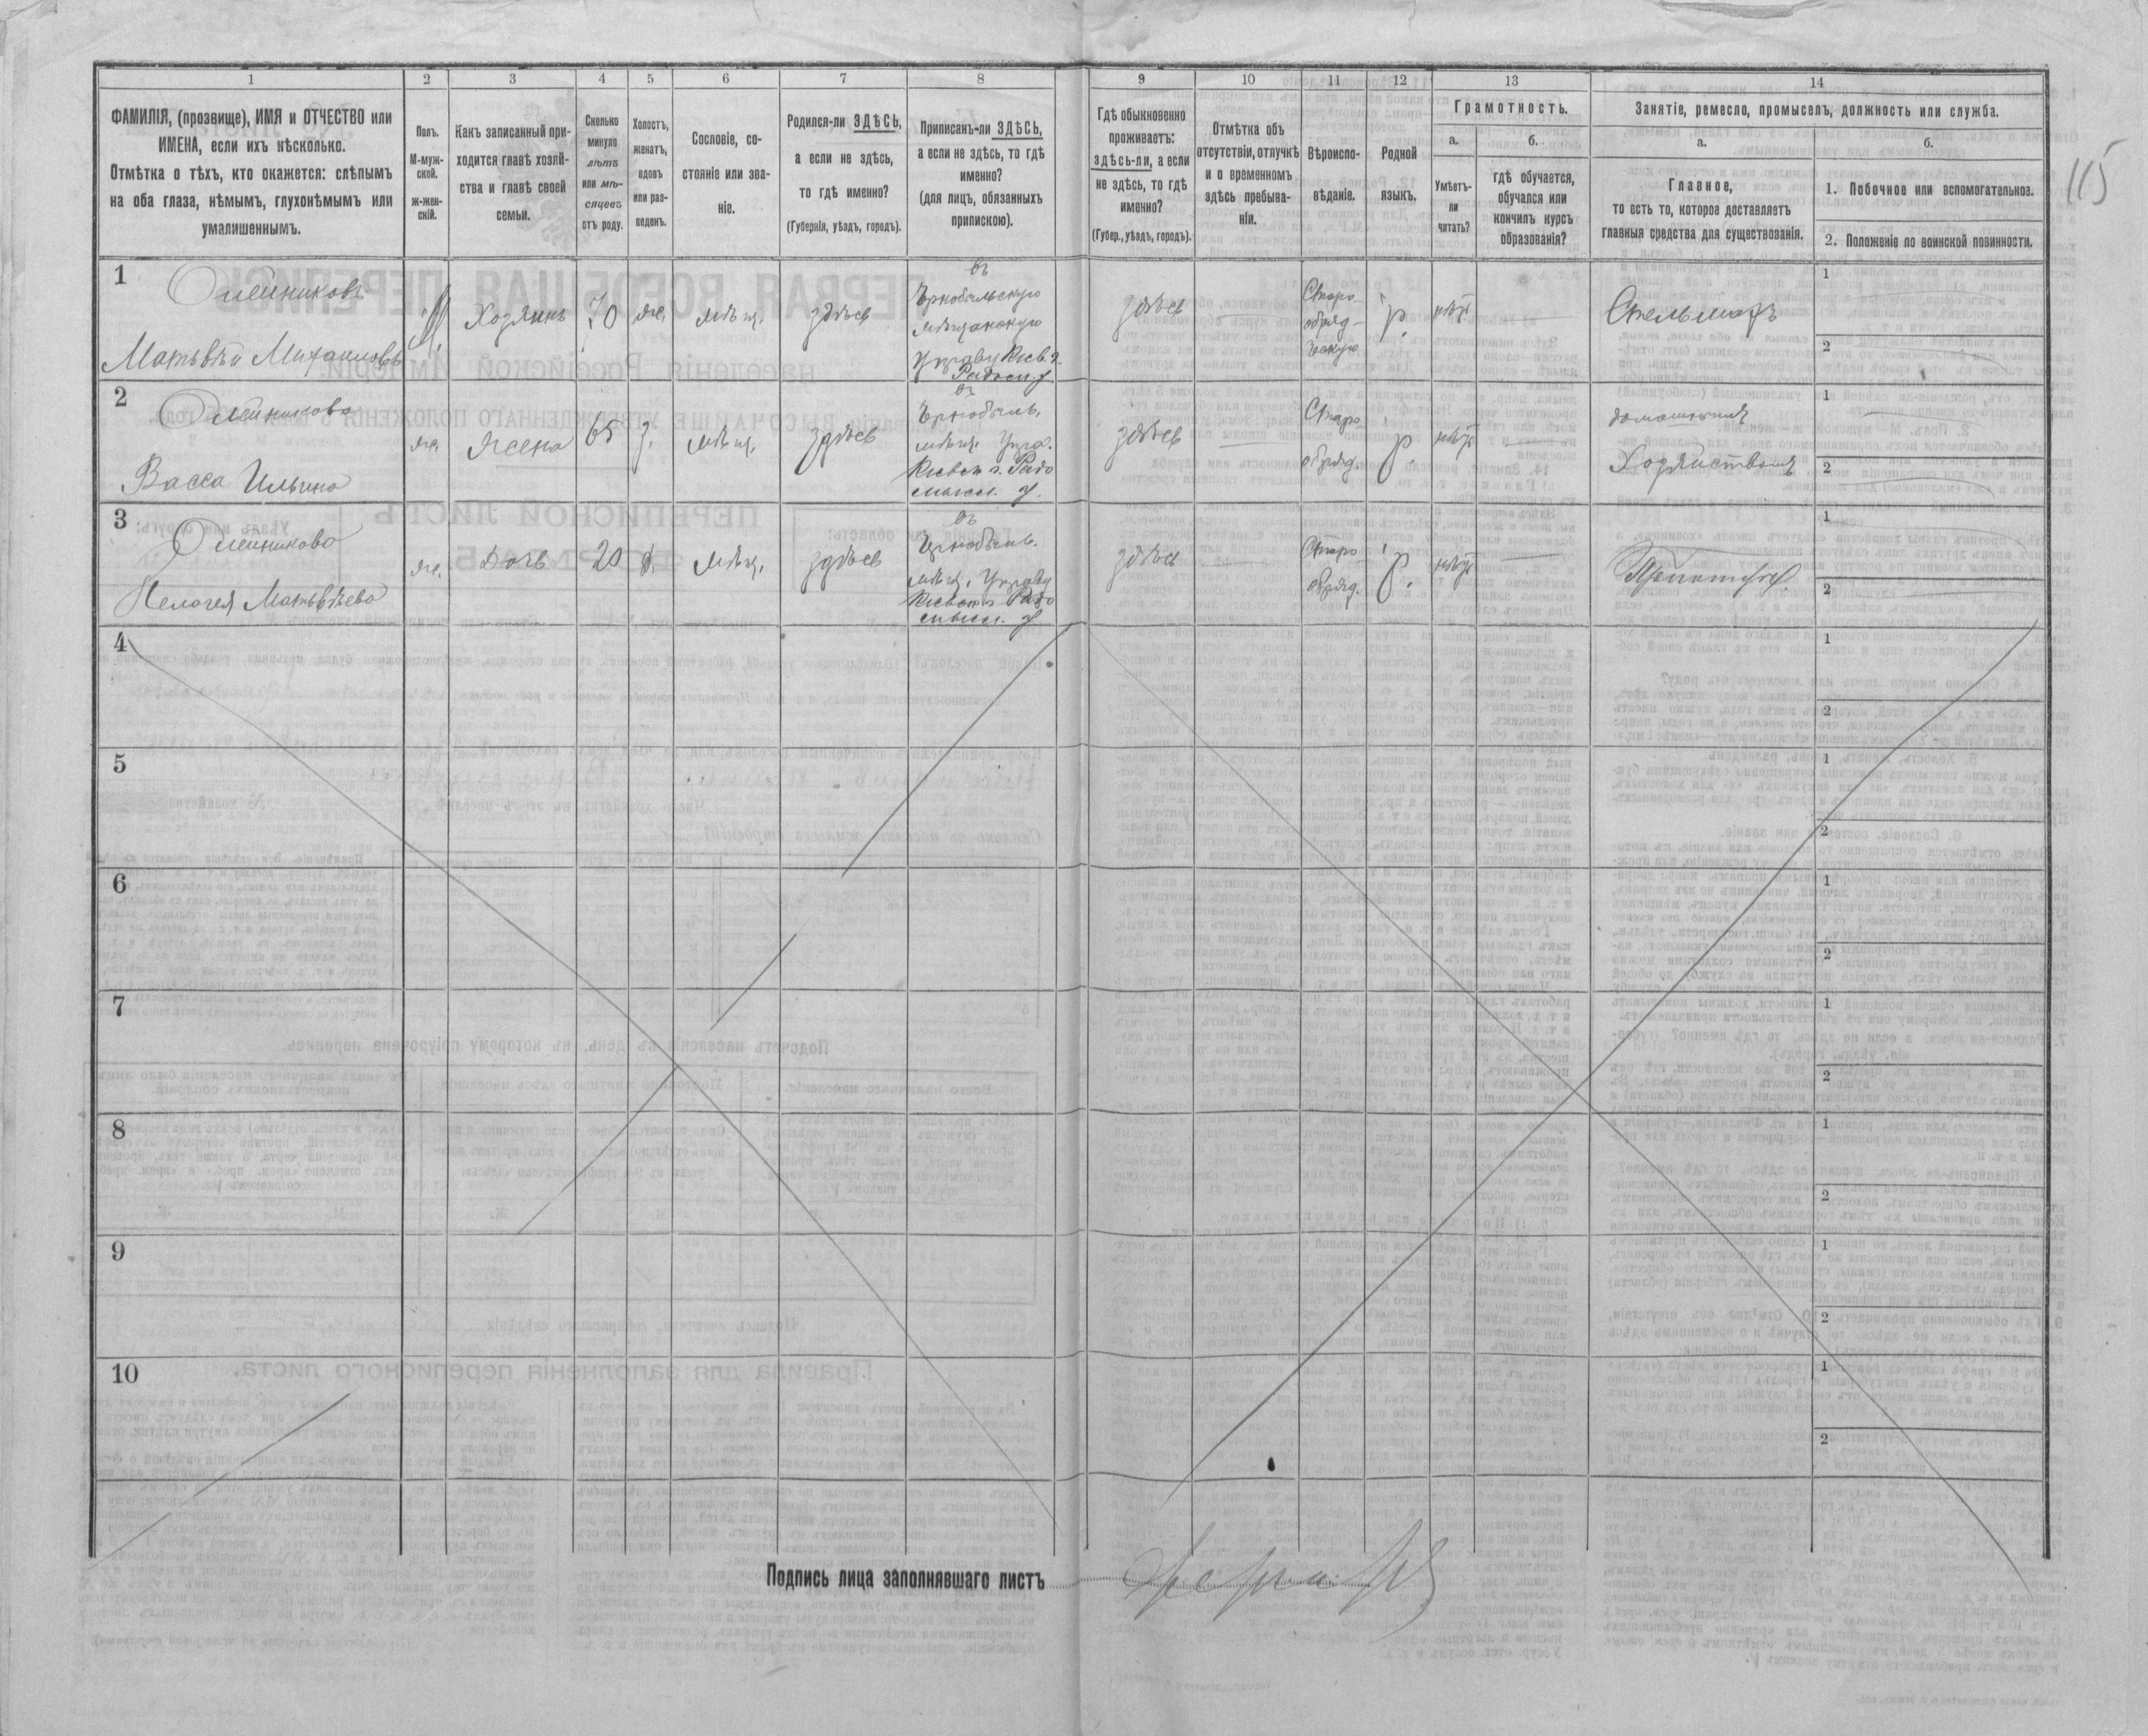 1
2
3
4
5
6
7
8
9
10
11
12
13
14
ФАМИЛІЯ, (прозвище), ИМЯ и ОТЧЕСТВО или
ИМЕНА, если ихъ нѣсколько.
Отмѣтка о тѣхъ, кто окажется: слѣпымъ
на оба глаза, нѣмымъ, глухонѣмымъ или
умалишеннымъ.
Полъ.
М-муж-
ской.
ж-жен-
скій.
Какъ записанный при-
ходится главѣ хозяй-
ства и главѣ своей
семьи.
Сколько
минуло
лѣтъ
или мѣ-
сяцевъ
отъ роду.
Холостъ,
женатъ,
вдовъ
или раз-
веденъ.
Сословіе, со-
стояніе или зва-
ніе.
Родился-ли ЗДѢСЬ,
а если не здѣсь,
то гдѣ именно?
(Губернія, уѣздъ, городъ).
Приписанъ-ли ЗДѢСЬ,
а если не здѣсь, то гдѣ
именно?
(для лицъ, обязанныхъ
припискою).
Гдѣ обыкновенно
проживаетъ:
здѣсь-ли, а если
не здѣсь, то гдѣ
именно?
(Губер., уѣздъ, городъ).
Отмѣтка объ
отсутствіи, отлучкѣ
и о временномъ
здѣсь пребыва-
ніи.
Вѣроиспо-
вѣданіе.
Родной
языкъ.
Грамотность.
а.
Умѣетъ-
ли
читать?
б.
гдѣ обучается,
обучался или
кончилъ курсъ
образованія?
Занятіе, ремесло, промыселъ, должность или служба.
а.
Главное,
то есть то, которое доставляетъ
главныя средства для существованія.
б.
1. Побочное или вспомогательное.
2. Положеніе по воинской повинности.
115
1
Олейниковъ
Матьвѣй Михаиловъ
М.
Хозяинъ
70
же.
мѣщ.
здѣсь
въ
Чернобыльскую
мѣщанскую
Управу Кіев. г.
Радом. у.
здѣсь
Старо
обряд-
ческую
р.
нѣт
Стельмахъ
1
2
2
Олейникова
Васса Ильина
же.
Жена
65
з.
мѣщ.
здѣсь
въ
Чернобыль.
мѣщ. Упра.
Кіевск г. Радо
мысл. у.
здѣсь
Старо
обряд.
р.
нѣт
домашнія
Хозяйствомъ
1
2
3
Олейникова
Пелагея Матьвѣева
же.
Дочь
20
д.
мѣщ.
здѣсь
въ
Чернобыль.
мѣщ. Управу
Кіевск г. Радо
мысл. у
здѣсь
Старо
обряд.
р.
нѣт
1
2
4
1
2
5
1
2
6
1
2
7
1
2
8
1
2
9
1
2
10
1
2
Подпись лица заполнявшаго листъ